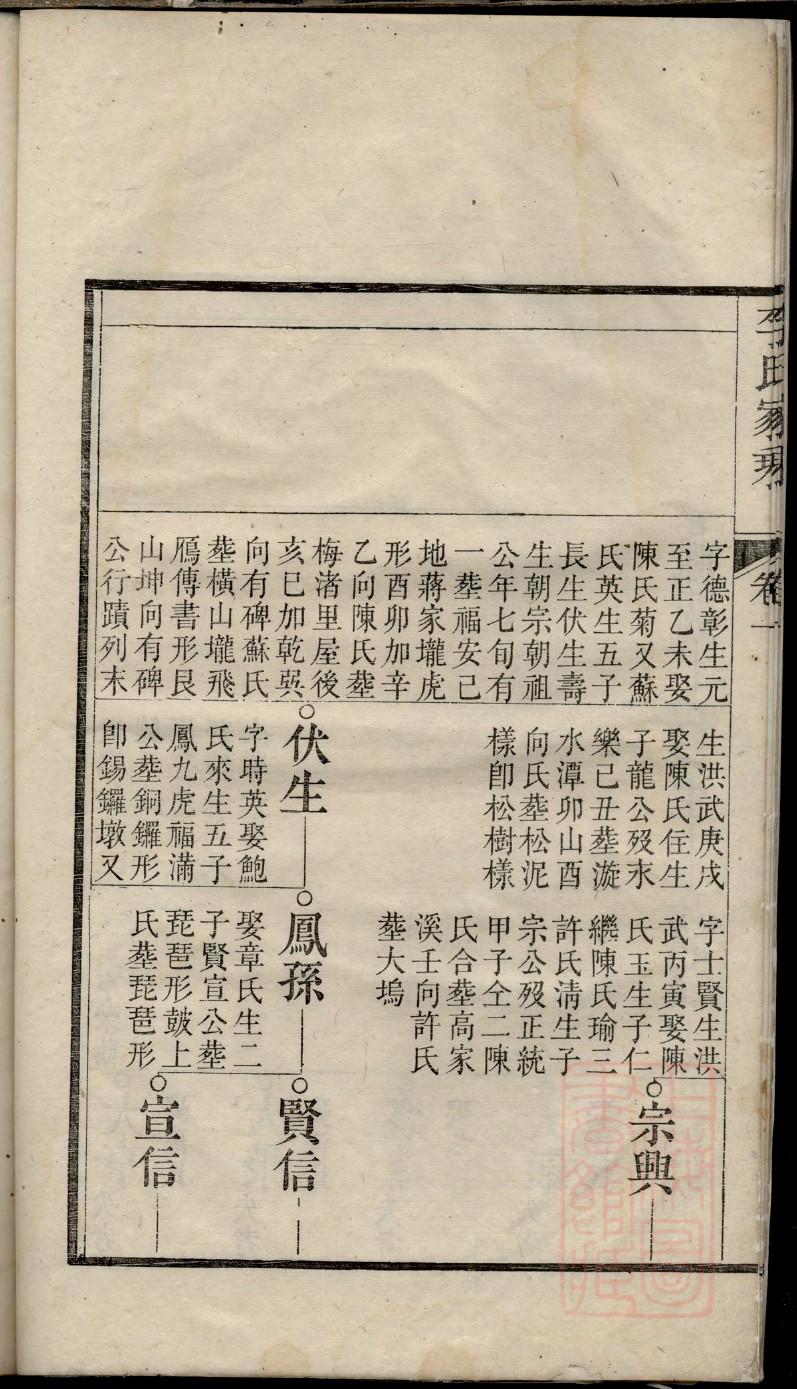 李氏家乘
卷一
字德彰生元
至正乙未娶
陳氏菊又蘇
氏英生五子
長生伏生壽
生朝宗朝祖
公年七旬有
一塟福安己
地蔣家壠虎
形酉卯加辛
乙向陳氏塟
梅渚里屋後
亥巳加乾㢲
向有碑蘇氏
塟橫山壠飛
鴈傳書形艮
山坤向有碑
公行蹟列末
生洪武庚戌
娶陳氏住生
子龍公歿永
樂己丑塟漩
水潭卯山酉
向氏塟松泥
樣卽松樹樣
伏生
字時英娶鮑
氏來生五子
鳳九虎福滿
公塟銅鑼形
卽錫鑼墩又
字士賢生洪
武丙寅娶陳
氏玉生子仁
繼陳氏瑜三
許氏淸生子
宗公歿正統
甲子仝二陳
氏合塟高家
溪壬向許氏
塟大塢
鳳孫
娶章氏生二
子賢宣公塟
琵琶形皷上
氏塟琵琶形
宗興
賢信
宣信